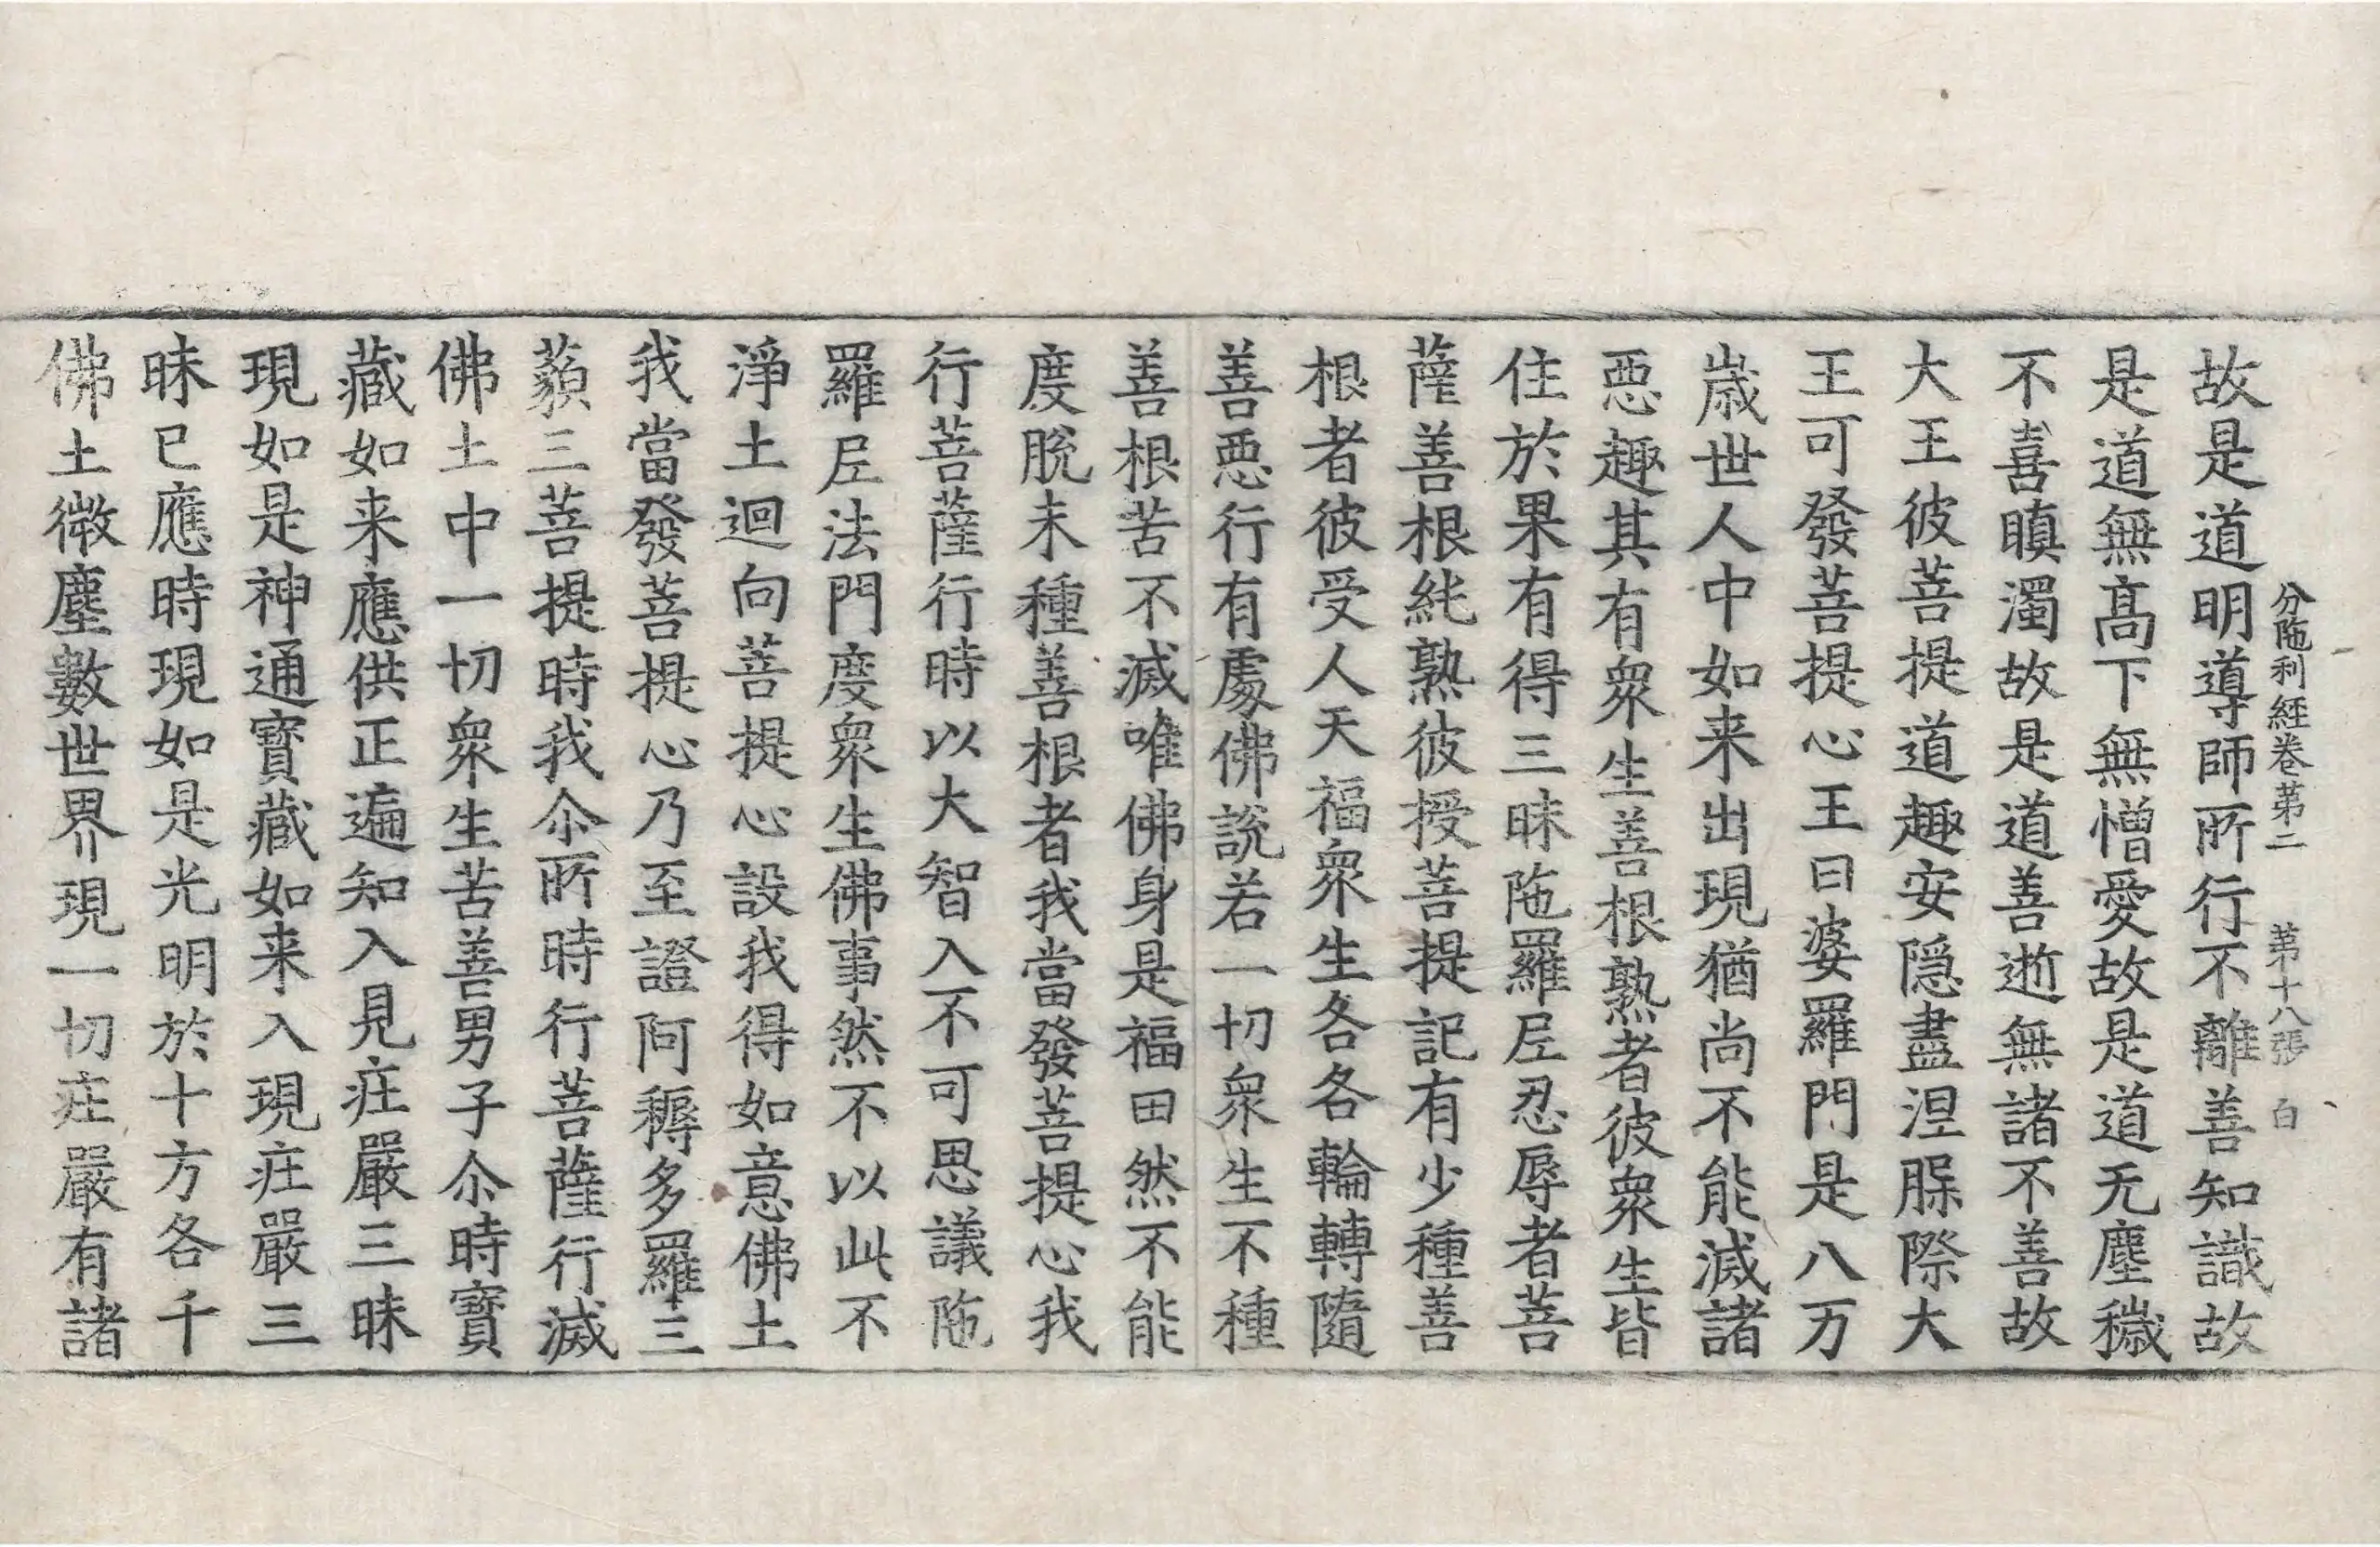 分陁利經卷第二　第十八張　白
故是道明導師所行不離善知識故
是道無髙下無憎愛故是道无塵穢
不喜瞋濁故是道善逝無諸不善故
大王彼菩提道趣安隱盡涅脲際大
王可發菩提心王曰婆羅門是八万
歳世人中如来出現猶尚不能滅諸
惡趣其有衆生善根熟者彼衆生皆
住於果有得三昧陁羅尼忍辱者菩
薩善根純熟彼授菩提記有少種善
根者彼受人天福衆生各各輪轉隨
善惡行有處佛說若一切衆生不種
善根苦不滅唯佛身是福田然不能
度脫未種善根者我當發菩提心我
行菩薩行時以大智入不可思議陁
羅尼法門度衆生佛事然不以此不
淨土迴向菩提心設我得如意佛土
我當發菩提心乃至證阿耨多羅三
藐三菩提時我尒所時行菩薩行滅
佛土中一切衆生苦善男子尒時寶
藏如来應供正遍知入見庄嚴三昧
現如是神通寶藏如来入現庄嚴三
昧已應時現如是光明於十方各千
佛土微塵數世界現一切庄嚴有諸